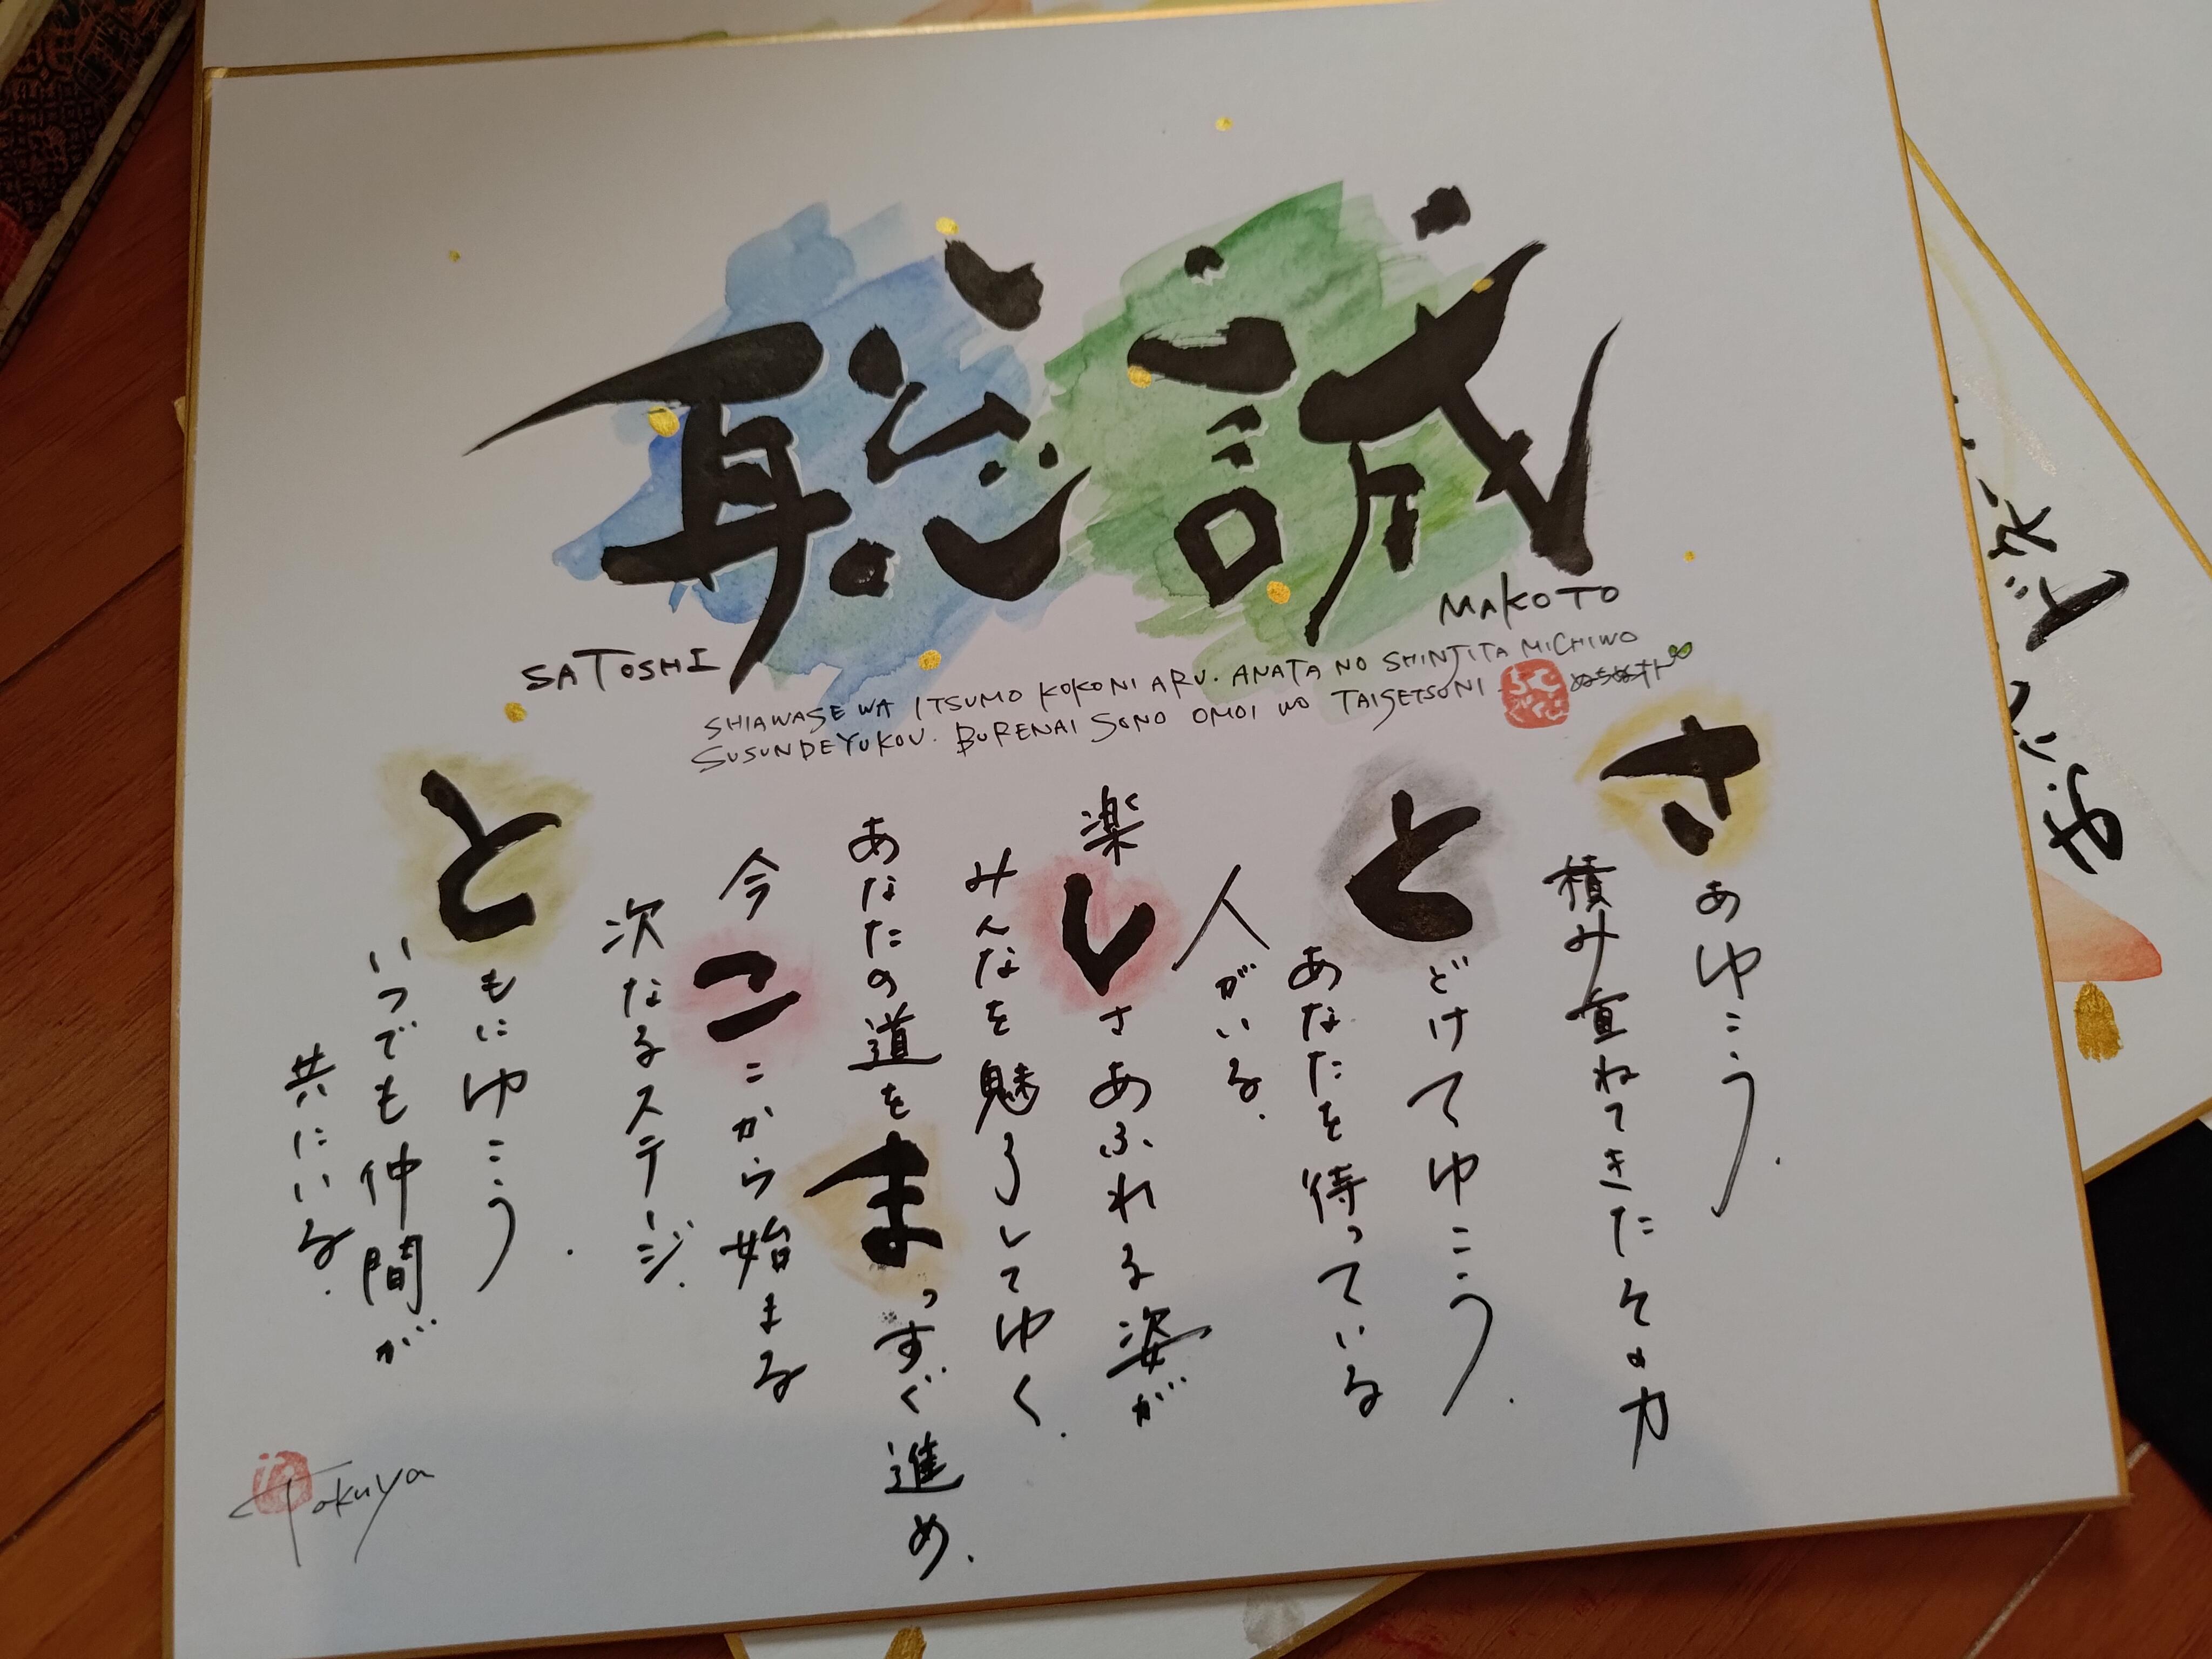 聡 誠
SATOSHI
MAKOTO
SHIAWASE WA ITSUMO KOKONI ARU. ANATA NO SHINJITA MICHIWO
SUSUNDEYUKOU. BURENAI SONO OMOI WO TAISETSUNI
さあゆこう.
積み重ねてきたその力
とどけてゆこう.
あなたを待っている
人がいる.
楽しさあふれる姿が
みんなを魅了してゆく.
あなたの道をまっすぐ進め.
今ここから始まる
次なるステージ.
ともにゆこう.
いつでも仲間が
共にいる.
Takuya